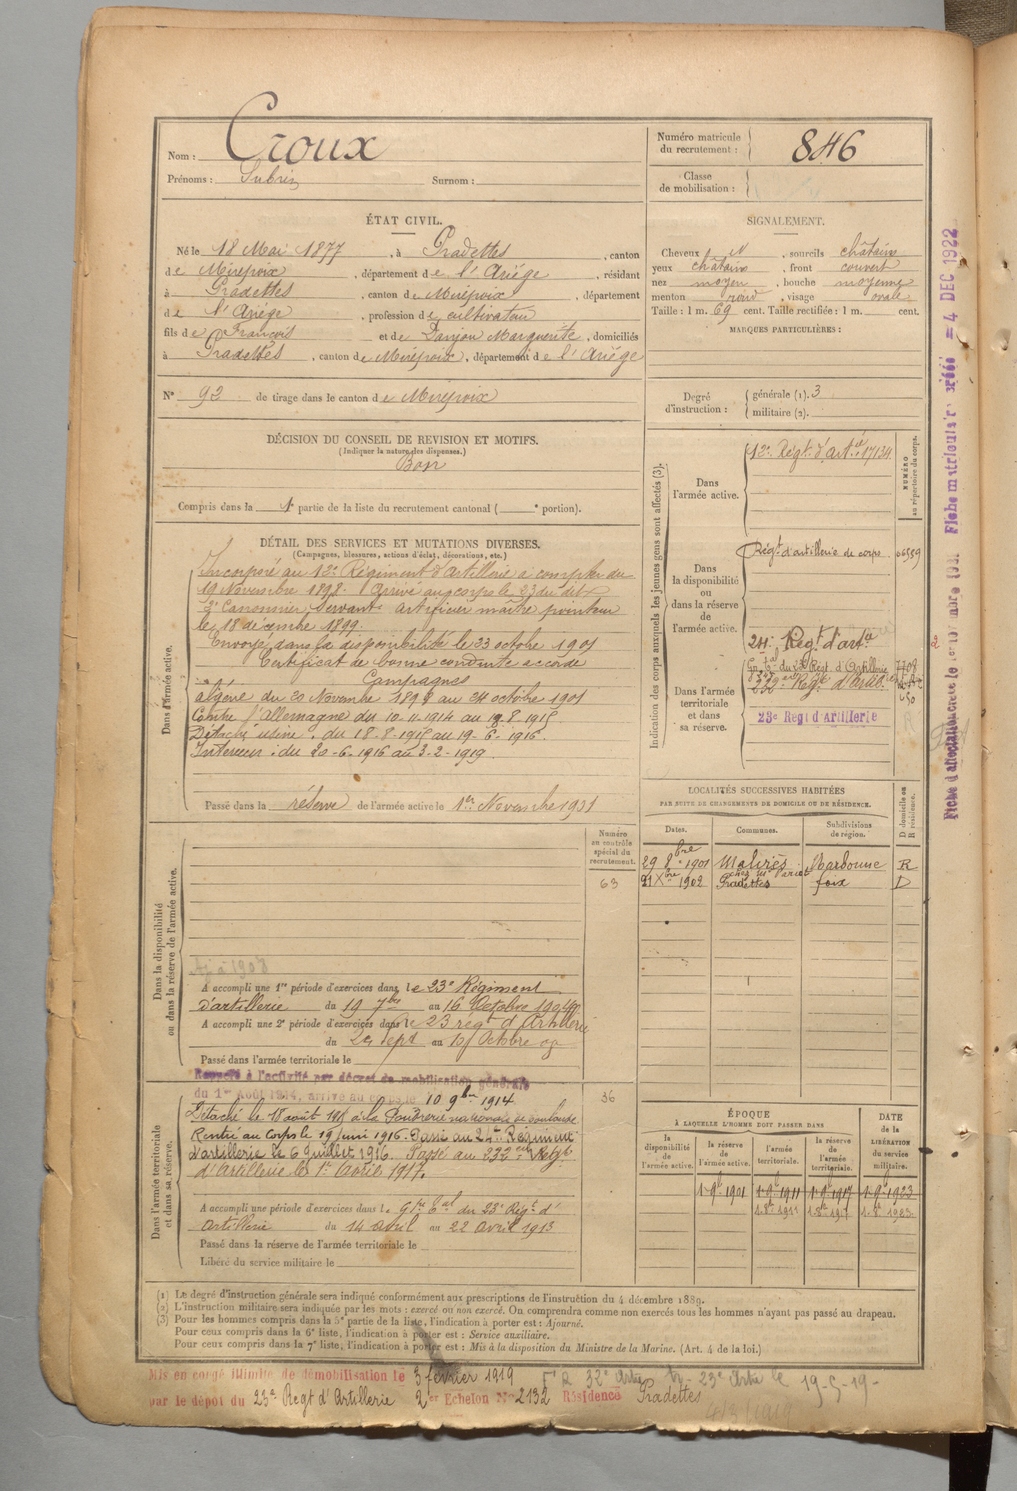 Nom : Croux
Prénoms : Subrin Surnom :
Numéro matricule du recrutement : 846
Classe de mobilisation :
ÉTAT CIVIL.
Né le 18 Mai 1877, à Pradettes, canton
de Mirepoix, département de l'Ariége, résidant
à Pradettes, canton de Mirepoix, département
de l'Ariege, profession de cultivateur
fils de François et de Danjou Marguerite, domiciliés
à Pradettes, canton de Mirepoix, département de l'Ariége
N° 92 de tirage dans le canton de Mirepoix
SIGNALEMENT.
Cheveux N, sourcils châtains
yeux châtains, front couvert
nez moyen, bouche moyenne
menton rond, visage ovale
Taille : 1 m. 69 cent. Taille rectifiée : 1 m. cent.
MARQUES PARTICULIÈRES :
Degré d'instruction : générale (1). 3
militaire (2).
DÉCISION DU CONSEIL DE REVISION ET MOTIFS.
(Indiquer la nature des dispenses.)
Bon
Compris dans la 1e partie de la liste du recrutement cantonal ( e portion).
DÉTAIL DES SERVICES ET MUTATIONS DIVERSES.
(Campagnes, blessures, actions d'éclat, décorations, etc.)
Dans l'armée active.
Incorporé au 12e Régiment d'artillerie à compter du
19 Novembre 1898. Arrivé au corps le 23 du dit
2e Canonnier Servant artificier maître pointeur
le 18 décembre 1899.
Envoyé dans la disponibilité le 23 octobre 1901
Certificat de bonne conduite accordé
Campagnes
algérie du 20 Novembre 1898 au 24 octobre 1901
Contre l'Allemagne du 10-11-1914 au 19-8-1915
Détaché usine : du 18-8-1915 au 19-6-1916
Intérieur : du 20-6-1916 au 3-2-1919
Passé dans la réserve de l'armée active le 1er Novembre 1901
Indication des corps auxquels les jeunes gens sont affectés (3).
NUMÉRO au répertoire du corps.
Dans l'armée active.
12e Régt d'artie 17134
Dans la disponibilité ou dans la réserve de l'armée active.
Régt d'artillerie de corps 06559
24e Régt d'artie
Dans l'armée territoriale et dans sa réserve.
Gr. Tal du 23e Régt d'Artillerie 7708
232e Régt d'Artie
23e Régt d'Artillerie
LOCALITÉS SUCCESSIVES HABITÉES
PAR SUITE DE CHANGEMENTS DE DOMICILE OU DE RÉSIDENCE.
Dates. Communes. Subdivisions de région. D domicile ou R résidence.
29 8bre 1901 Malviès Narbonne R
21 Xbre 1902 Pradettes foix D
Numéro au contrôle spécial du recrutement.
63
Dans la disponibilité ou dans la réserve de l'armée active.
A accompli une 1re période d'exercices dans le 23e Régiment
d'artillerie du 19 7bre au 16 Octobre 1904
A accompli une 2e période d'exercices dans le 23 régt d'Artillerie
du Sept au Octobre 09
Passé dans l'armée territoriale le
Rappelé à l'activité par décret de mobilisation générale
du 1er Août 1914, arrivé au corps le 10 9bre 1914
36
Dans l'armée territoriale et dans sa réserve.
Détaché le 18 août 1915 à la Poudrerie nationale de Toulouse
Rentré au Corps le 19 Juin 1916. Passé au 24e Régiment
d'artillerie le 6 Juillet 1916. Passé au 232eme Régt
d'Artillerie le 1er Avril 1917.
A accompli une période d'exercices dans le Gpe Tal du 23e Régt d'
artillerie du 14 avril au 22 avril 1913
Passé dans la réserve de l'armée territoriale le
Libéré du service militaire le
ÉPOQUE
À LAQUELLE L'HOMME DOIT PASSER DANS
DATE de la LIBÉRATION du service militaire.
la disponibilité de l'armée active. la réserve de l'armée active. l'armée territoriale. la réserve de l'armée territoriale.
1 9b 1901 1 9b 1911 1 9b 1917 1 9b 1923
1 8b 1911 1 8b 1917 1 8b 1923
(1) Le degré d'instruction générale sera indiqué conformément aux prescriptions de l'instruction du 4 décembre 1889.
(2) L'instruction militaire sera indiquée par les mots : exercé ou non exercé. On comprendra comme non exercés tous les hommes n'ayant pas passé au drapeau.
(3) Pour les hommes compris dans la 5e partie de la liste, l'indication à porter est : Ajourné.
Pour ceux compris dans la 6e liste, l'indication à porter est : Service auxiliaire.
Pour ceux compris dans la 7e liste, l'indication à porter est : Mis à la disposition du Ministre de la Marine. (Art. 4 de la loi.)
Mis en congé illimité de démobilisation le 3 février 1919
par le dépôt du 23e Régt d'Artillerie 2er Echelon No 2132 Résidence Pradettes
32e Artie 23e Artie le 19-5-19-
= 4 DEC 1922